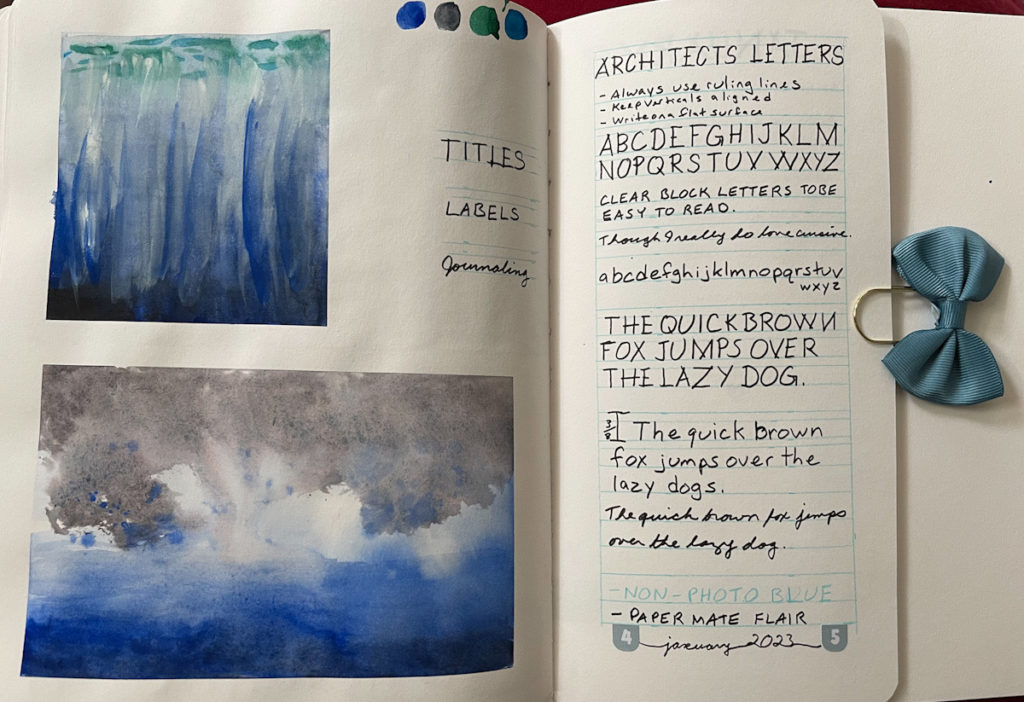 TITLES
LABELS
Journaling
ARCHITECTS LETTERS
- Always use ruling lines
- Keep verticals aligned
- Write on a flat surface
ABCDEFGHIJKLM
NOPQRSTUVWXYZ
CLEAR BLOCK LETTERS TO BE
EASY TO READ.
Though I really do love cursive.
abcdefghijklmnopqrstuv
wxyz
THE QUICK BROWN
FOX JUMPS OVER
THE LAZY DOG.
3/8 The quick brown
fox jumps over the
lazy dogs.
The quick brown fox jumps
over the lazy dog.
- NON-PHOTO BLUE
- PAPER MATE FLAIR
4 january 2023 5